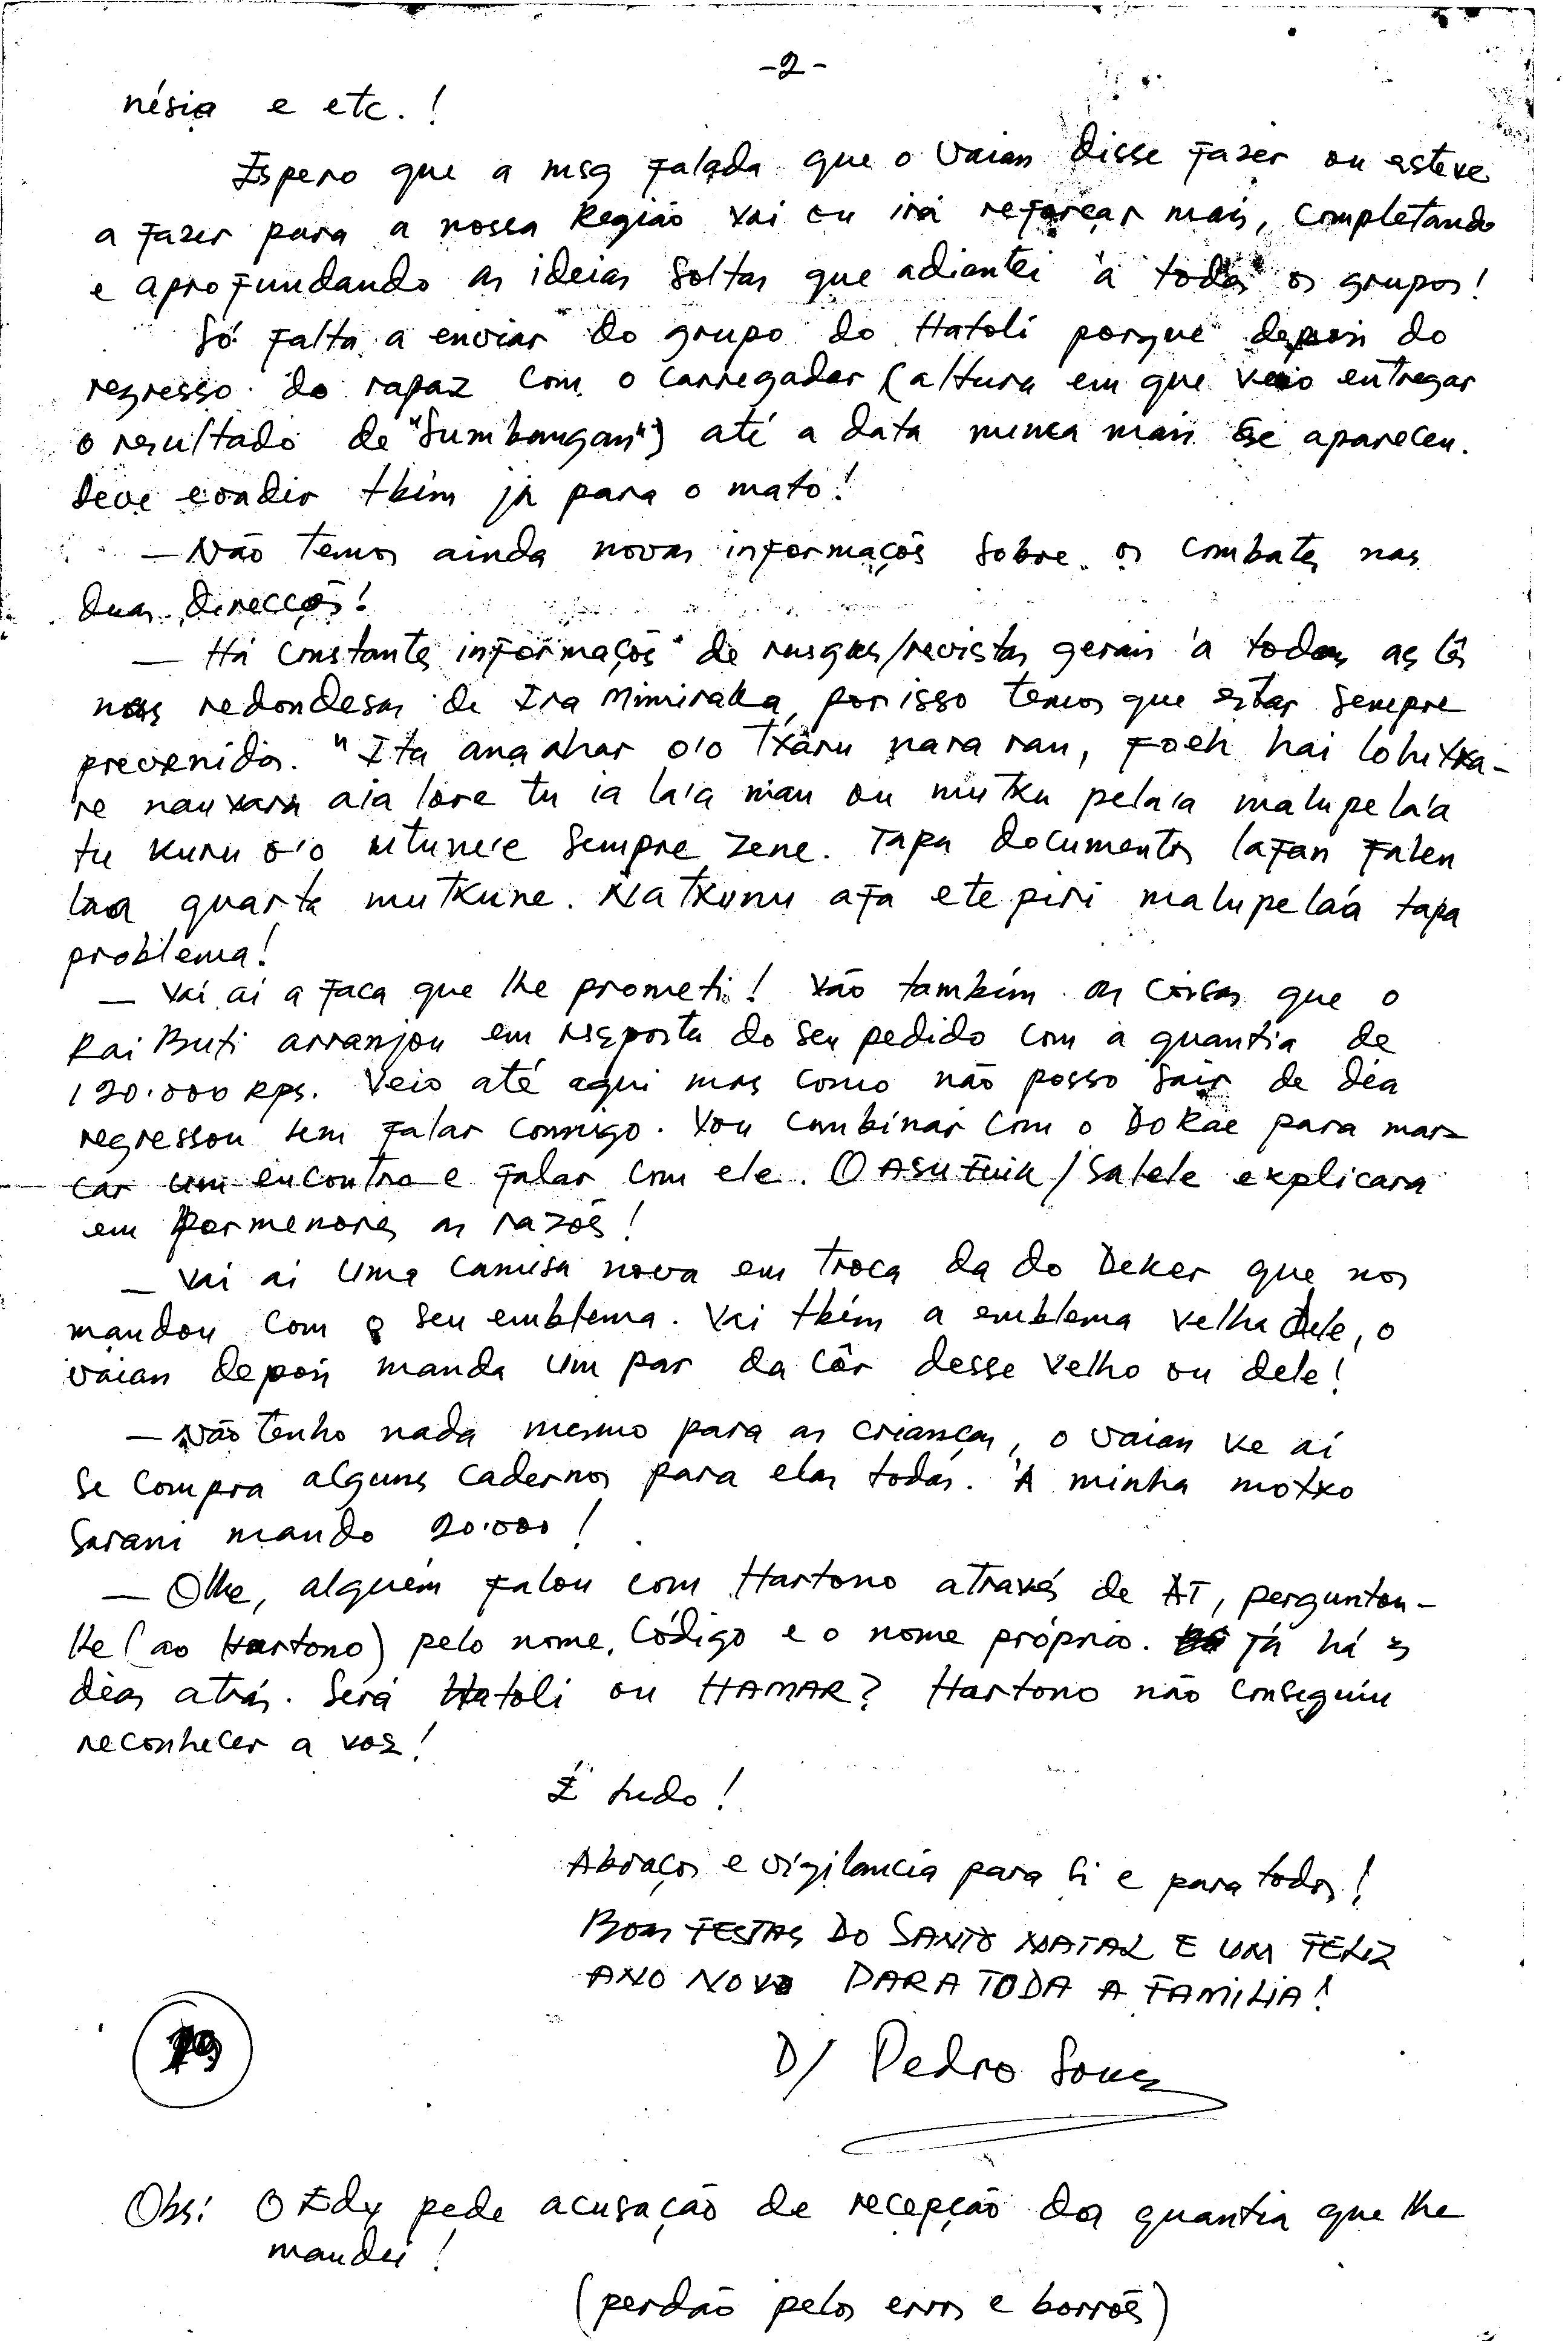 -2-
nésia e etc.!
Espero que a msg falada que o Vaian disse fazer ou esteve
a fazer para a nossa Região vai ou irá reforçar mais, completando
e aprofundando as ideias soltas que adiantei à todos os grupos!
Só falta a enviar do grupo do Hatoli porque depois do
regresso do rapaz com o carregador (altura em que veio entregar
o resultado de "Sumbangan") até a data nunca mais se apareceu.
Deve evadir tbém já para o mato!
— Não temos ainda novas informaçõs sobre os combates nas
duas direcçõs!
— Há constantes informaçõs de rusgas/revistas gerais à todas as
nas redondesas de Ira Mimiraka, por isso temos que estar sempre
prevenidos. "Ita ana nhar o'o Txãru nara rau, foeh hai lohitxa-
re nauvara aia lore tu ia la'a mau ou mutku pela'a malupela'a
tu kuru o'o utune'e sempre zene. Tapa documentos lafan falen
laa quarta mutkune. Natxunu afa ete piri malupeláa tapa
problema!
— Vai aí a faca que lhe prometi! Vão também as coisas que o
Rai Buti arranjou em resposta do seu pedido com a quantia de
120.000 Rps. Veio até aqui mas como não posso sair de dia
regressou sem falar comigo. Vou combinar com o DoRae para mar-
car um encontro e falar com ele. O ASU FUIK/Salele explicara
em pormenores as razõs!
— Vai aí uma camisa nova em troca da do Deker que nos
mandou com o seu emblema. Vai tbém a emblema velha dele, o
Vaian depois manda um par da côr desse velho ou dele!
— Não tenho nada mesmo para as crianças, o Vaian ve aí
se compra alguns cadernos para elas todas. À minha motxo
Sarani mando 20.000!
— Olhe, alguém falou com Hartono através de AT, perguntou-
lhe (ao Hartono) pelo nome, Código e o nome próprio. Já há 3
dias atrás. Será Hatoli ou HAMAR? Hartono não conseguiu
reconhecer a voz!
É tudo!
Abraços e vigilancia para si e para todos!
BOAS FESTAS DO SANTO NATAL E UM FELIZ
ANO NOVO PARA TODA A FAMILIA!
D/ Pedro Sousa
19
Obs: O Edy pede acusação de recepção da quantia que lhe
mandei!
(perdão pelos erros e borrõs)